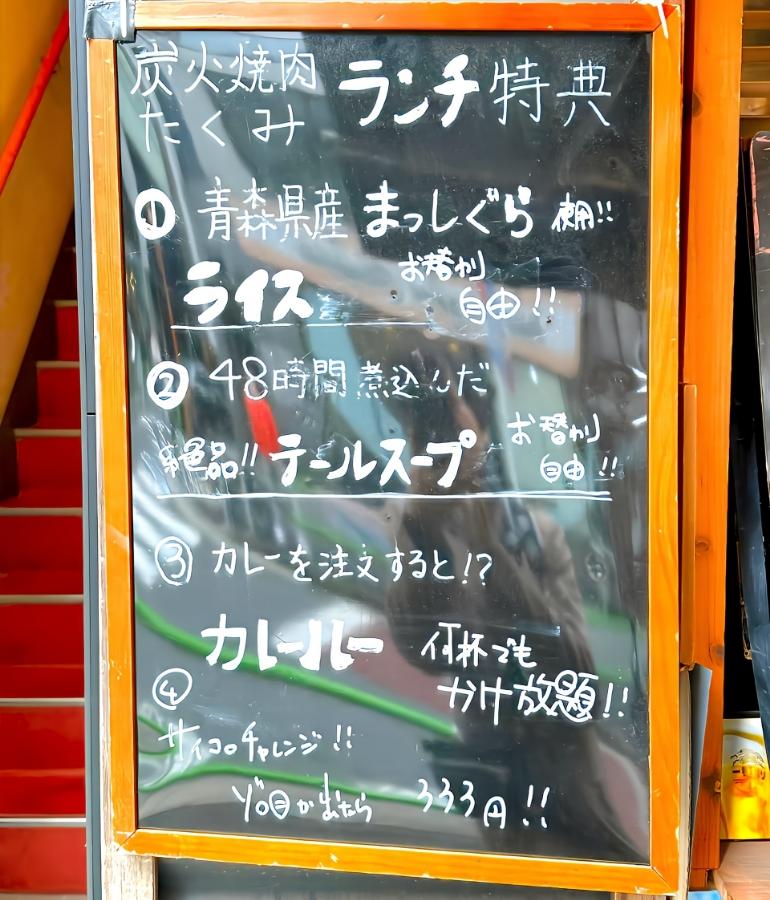 炭火焼肉
たくみ
ランチ特典
① 青森県産 まっしぐら 使用!!
ライス お替わり
自由!!
② 48時間煮込んだ
絶品!! テールスープ お替わり
自由!!
③ カレーを注文すると!?
カレールー 何杯でも
かけ放題!!
④
サイコロチャレンジ!!
ゾロ目が出たら 333円!!